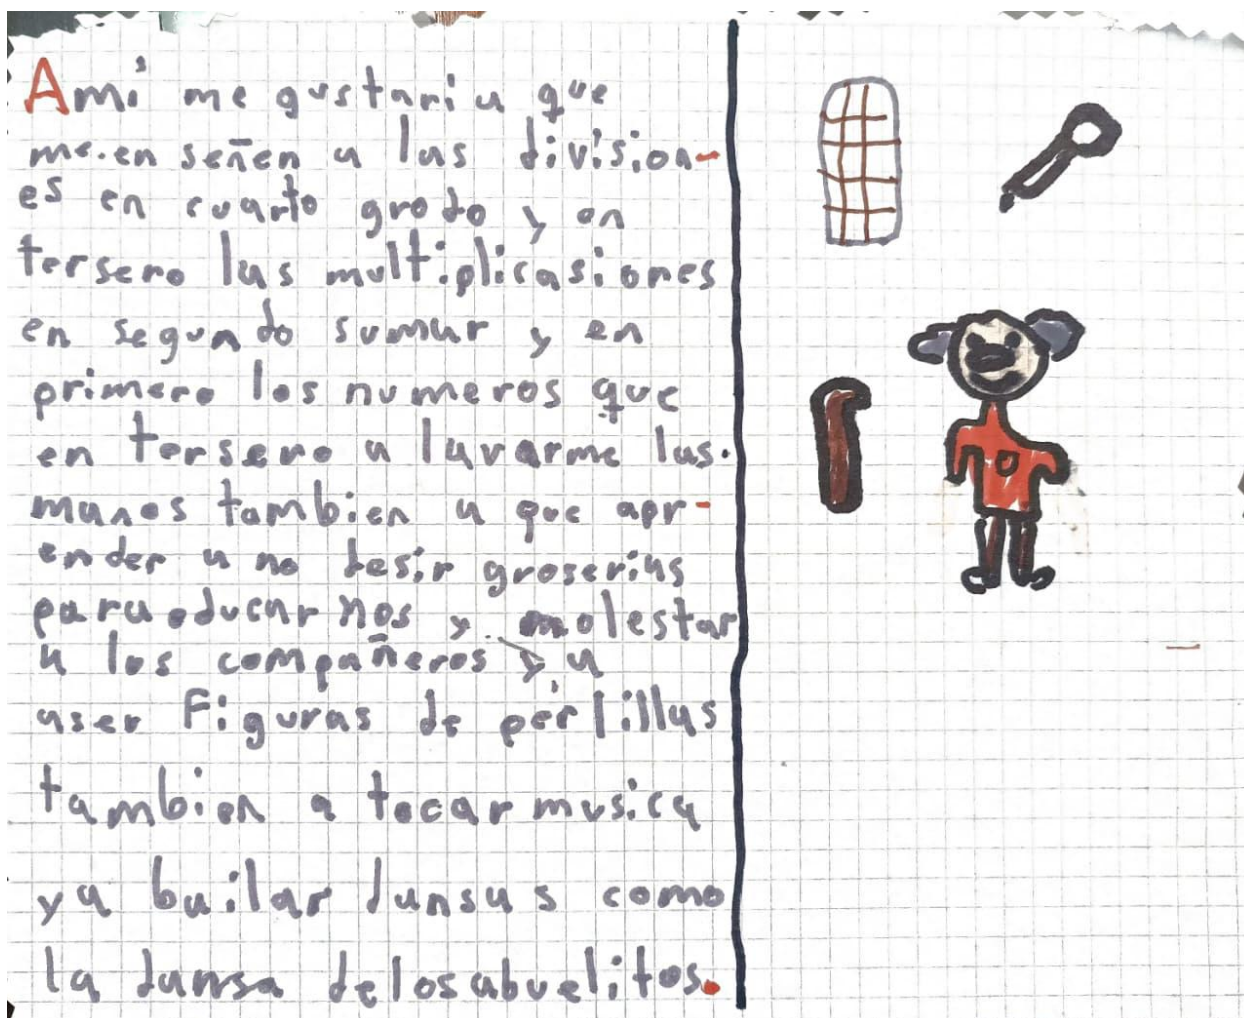 Ami me gustaria que
me.en señen a las division-
es en cuarto grado y en
tersero las multiplicasiones
en segundo sumar y en
primero los numeros que
en tersero a lavarme las.
manos tambien a que apr-
ender a no desir groserias
para educar nos y molestar
a los compañeros y a
aser Figuras de perlillas
tambien a tocar musica
ya bailar dansas como
la dansa delosabuelitos.